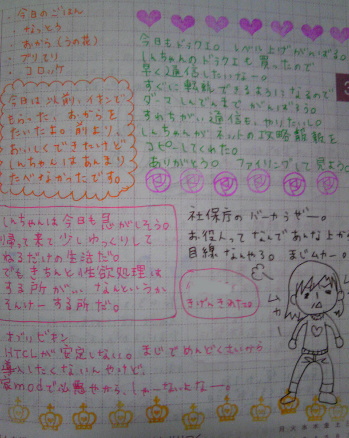 今日のごはん
・なっとう
・おから(うの花)
・ブリモリ
・コロッケ
今日もドラクエ。レベル上げがんばる。
しんちゃんのドラクエも買ったので
早く通信したいなー。
すぐに転職できるようになるので
ダーマしんでんまでがんばろう。
すれちがい通信も、やりたいし。
しんちゃんがネットの攻略解説を
コピーしてくれた。
ありがとう。ファイリングして見よう。
今日は以前、イオンで
もらった、おからを
たいたよ。前より、
おいしくできたけど
しんちゃんはあんまり
たべなかったです。
しんちゃんは今日も急がしそう。
帰って来て少しゆっくりして
ねるだけの生活だ。
でもきちんと性欲処理は
する所がいい。なんというか
そんけーする所だ。
社保庁のバーカうぜー。
お役人ってなんであんな上から
目線なんやろ。まじムカー。
ムカー
オブリビオン
HTCLが安定しない。まじでめんどくさいから
導入したくないんやけど、
愛modで必要やから、しゃーないよなー。